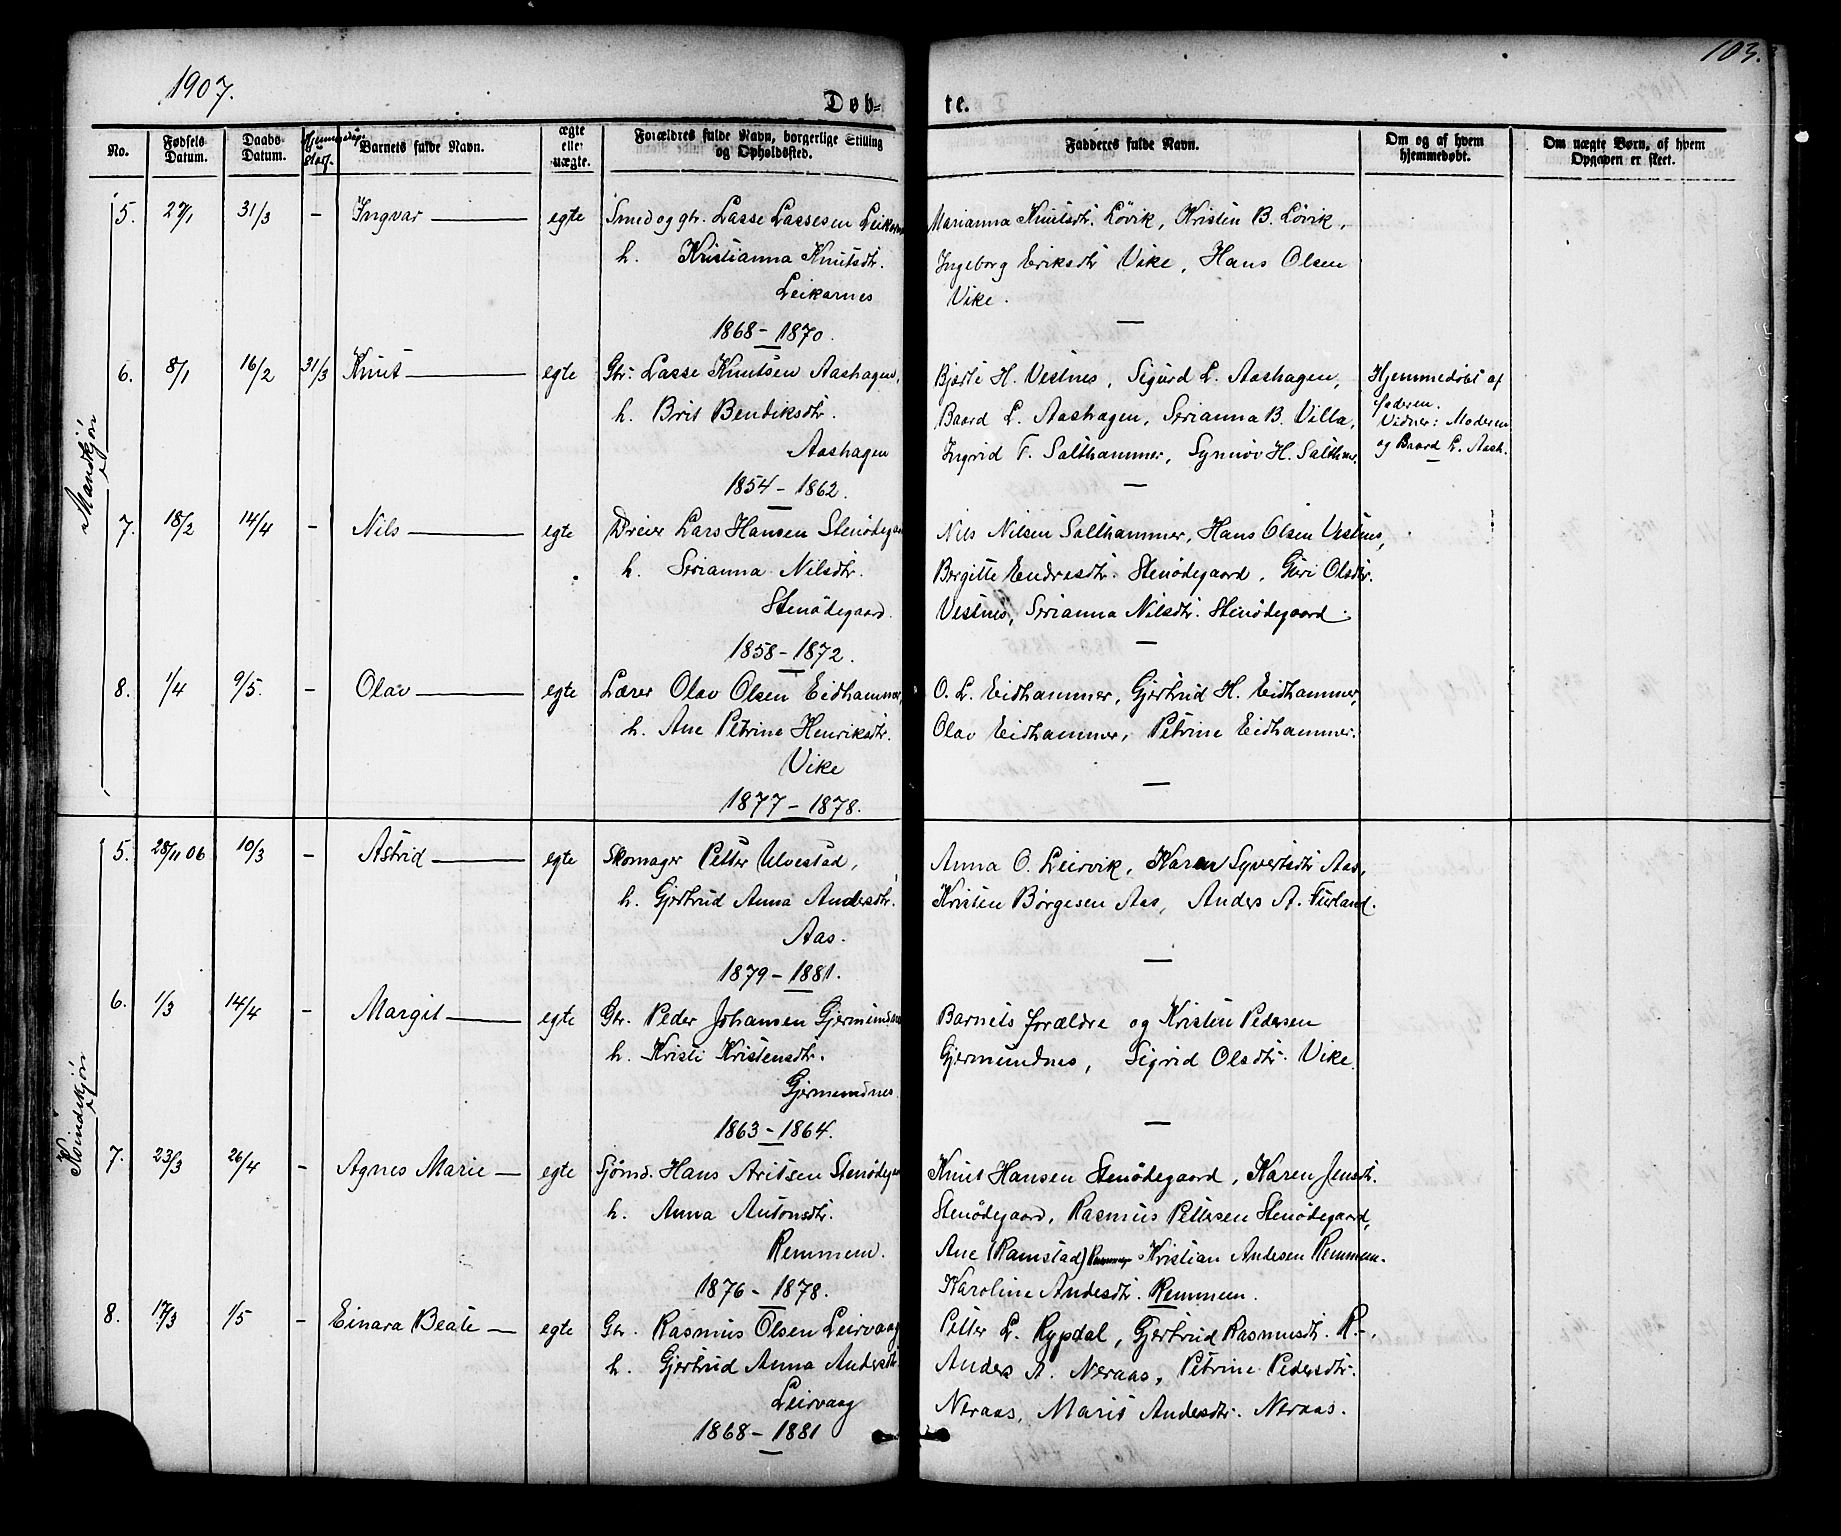 1907.
103.
Døb- te.
No.
Fødsels Datum.
Daabs Datum.
Barnets fulde Navn.
ægte eller uægte.
Forældres fulde Navn, borgerlige Stilling og Opholdssted.
Fadderes fulde Navn.
Om og af hvem hjemmedøbt.
Om uægte Børn, af hvem Opgaven er skeet.
Mandkjøn
5. 27/1 31/3 – Ingvar — egte Smed og gbr. Lasse Lassesen Leikarnes
h. Kristianna Knutsdtr.
Leikarnes
1868 – 1870.
Marianna Knutsdtr. Løvik, Kristen B. Løvik,
Ingeborg Eriksdtr Vike, Hans Olsen
Vike.
6. 8/1 16/2 31/3 Knut — egte Gbr. Lasse Knutsen Aashagen,
h. Brit Bendiksdtr.
Aashagen
1854 – 1862.
Bjarte H. Vestnes, Sigurd L. Aashagen,
Baard L. Aashagen, Serianna B. Villa,
Ingrid T. Salthammer, Synnøv H. Salthmr.
Hjemmedøbt af
faderen.
Vidner: Moderen
og Baard L. Aash.
7. 18/2 14/4 – Nils — egte Dreier Lars Hansen Stenødegaard
h. Serianna Nilsdtr.
Stenødegaard.
1858 – 1872.
Nils Nilsen Salthammer, Hans Olsen Vestnes,
Bergitte Endresdtr. Stenødegaard, Guri Olsdtr.
Vestnes, Serianna Nilsdtr. Stenødegaard.
8. 1/4 9/5. – Olav — egte Lærer Olav Olsen Eidhammer,
h. Ane Petrine Henriksdtr.
Vike
1877 – 1878.
O. L. Eidhammer, Gjertrud H. Eidhammer,
Olav Eidhammer, Petrine Eidhammer.
Kvindekjøn
5. 28/11 06 10/3 – Astrid — egte Skomager Petter Ulvestad,
h. Gjertrud Anna Andersdtr.
Aas.
1879 – 1881.
Anna O. Leirvik, Karen Syvertsdtr Aas,
Kristen Børgesen Aas, Anders A. Furland.
6. 1/3 14/4 – Margit — egte Gbr. Peder Johansen Gjermundnes
h. Kristi Kristensdtr.
Gjermundnes
1863 – 1864.
Barnets forældre og Kristen Pedersen
Gjermundnes, Sigrid Olsdtr. Vike.
7. 23/3 26/4 – Agnes Marie — egte Sjømd. Hans Aritsen Stenødegaard
h. Anna Antonsdtr.
Remmem.
1876 – 1878.
Knut Hansen Stenødegaard, Karen Jensdtr.
Stenødegaard, Rasmus Pettersen Stenødegaard,
Ane (Ramstad) Kristian Andesen Remmem.
Karoline Andesdtr. Remmem.
8. 17/3 1/5 – Einara Beate — egte Gbr. Rasmus Olsen Leirvaag
h. Gjertrud Anna Andersdtr.
Leirvaag
1868 – 1881
Petter L. Rypdal, Gjertrud Rasmusdtr. R–,
Anders A. Neraas, Petrine Pedersdtr.
Neraas, Marit Andesdtr. Neraas.